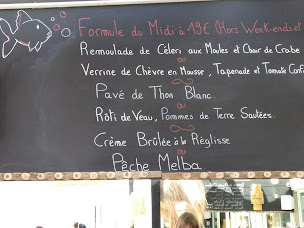 Formule du Midi à 19€ (Hors Week-ends et
Remoulade de Céleri aux Moules et Chair de Crabe
ou
Verrine de Chèvre en Mousse, Tapenade et Tomate Conf
Pavé de Thon Blanc
ou
Rôti de Veau, Pommes de Terre Sautées.
Crème Brûlée à la Réglisse
ou
Pêche Melba